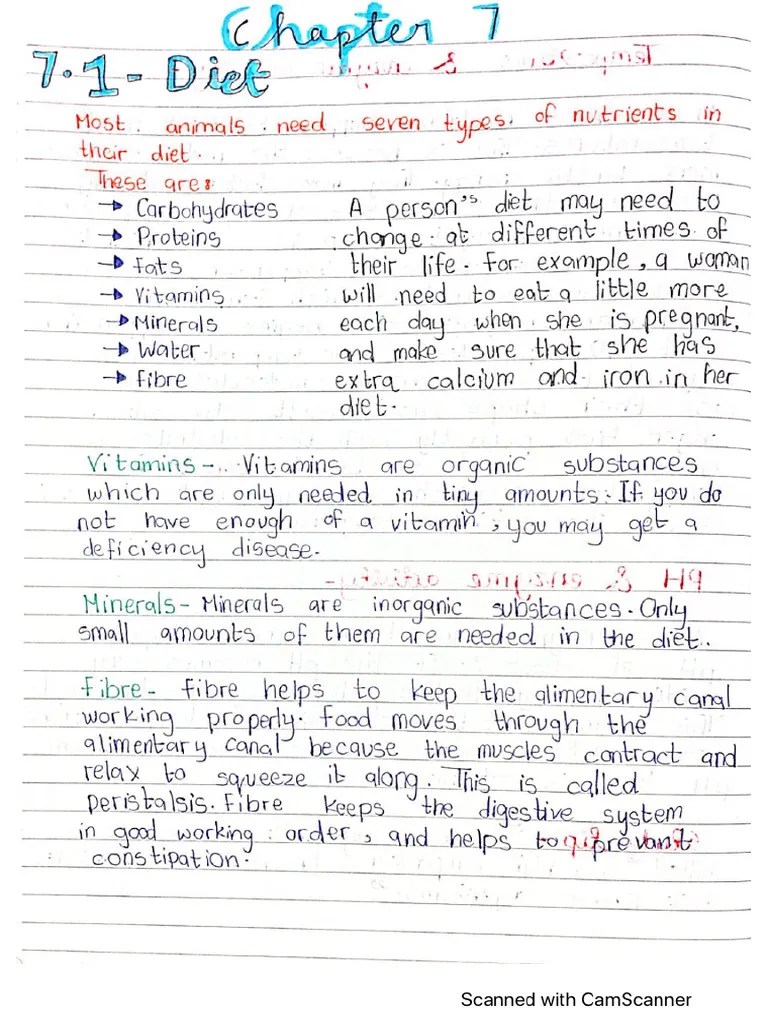 Chapter 7
7.1 - Diet
Most animals need seven types of nutrients in
their diet.
These are:
→ Carbohydrates
→ Proteins
→ Fats
→ Vitamins
→ Minerals
→ Water
→ Fibre
A person's diet may need to
change at different times of
their life. For example, a woman
will need to eat a little more
each day when she is pregnant,
and make sure that she has
extra calcium and iron in her
diet.
Vitamins - Vitamins are organic substances
which are only needed in tiny amounts. If you do
not have enough of a vitamin, you may get a
deficiency disease.
PH & enzyme activity-
Minerals - Minerals are inorganic substances. Only
small amounts of them are needed in the diet.
Fibre - Fibre helps to keep the alimentary canal
working properly. Food moves through the
alimentary canal because the muscles contract and
relax to squeeze it along. This is called
peristalsis. Fibre keeps the digestive system
in good working order, and helps to prevant
constipation.
Scanned with CamScanner